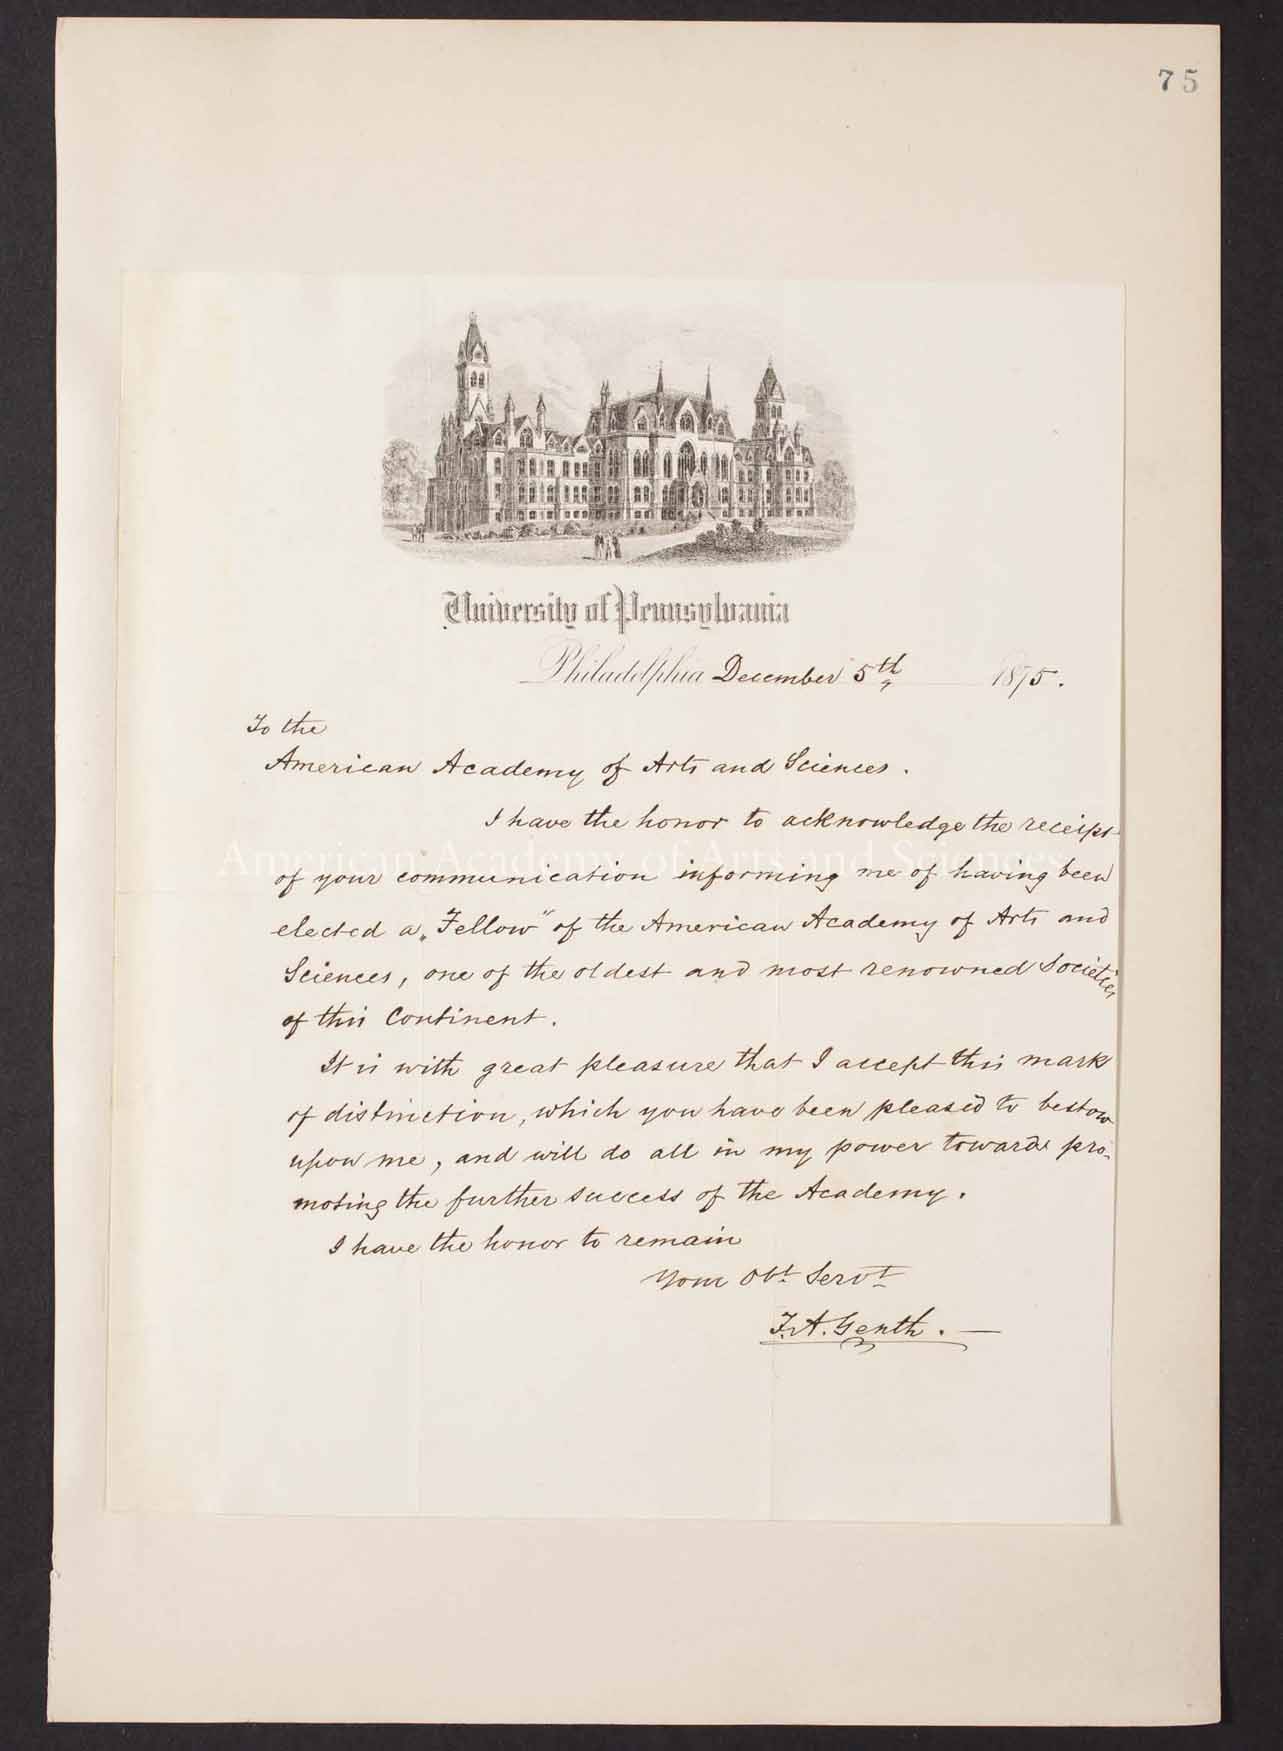 75
University of Pennsylvania
Philadelphia December 5th 1875.
To the
American Academy of Arts and Sciences.
I have the honor to acknowledge the receipt
American Academy of Arts and Sciences
of your communication informing me of having been
elected a „Fellow“ of the American Academy of Arts and
Sciences, one of the oldest and most renowned Societies
of this Continent.
It is with great pleasure that I accept this mark
of distinction, which you have been pleased to bestow
upon me, and will do all in my power towards pro-
moting the further success of the Academy.
I have the honor to remain
Your Obt. Servt
F.A. Genth. —